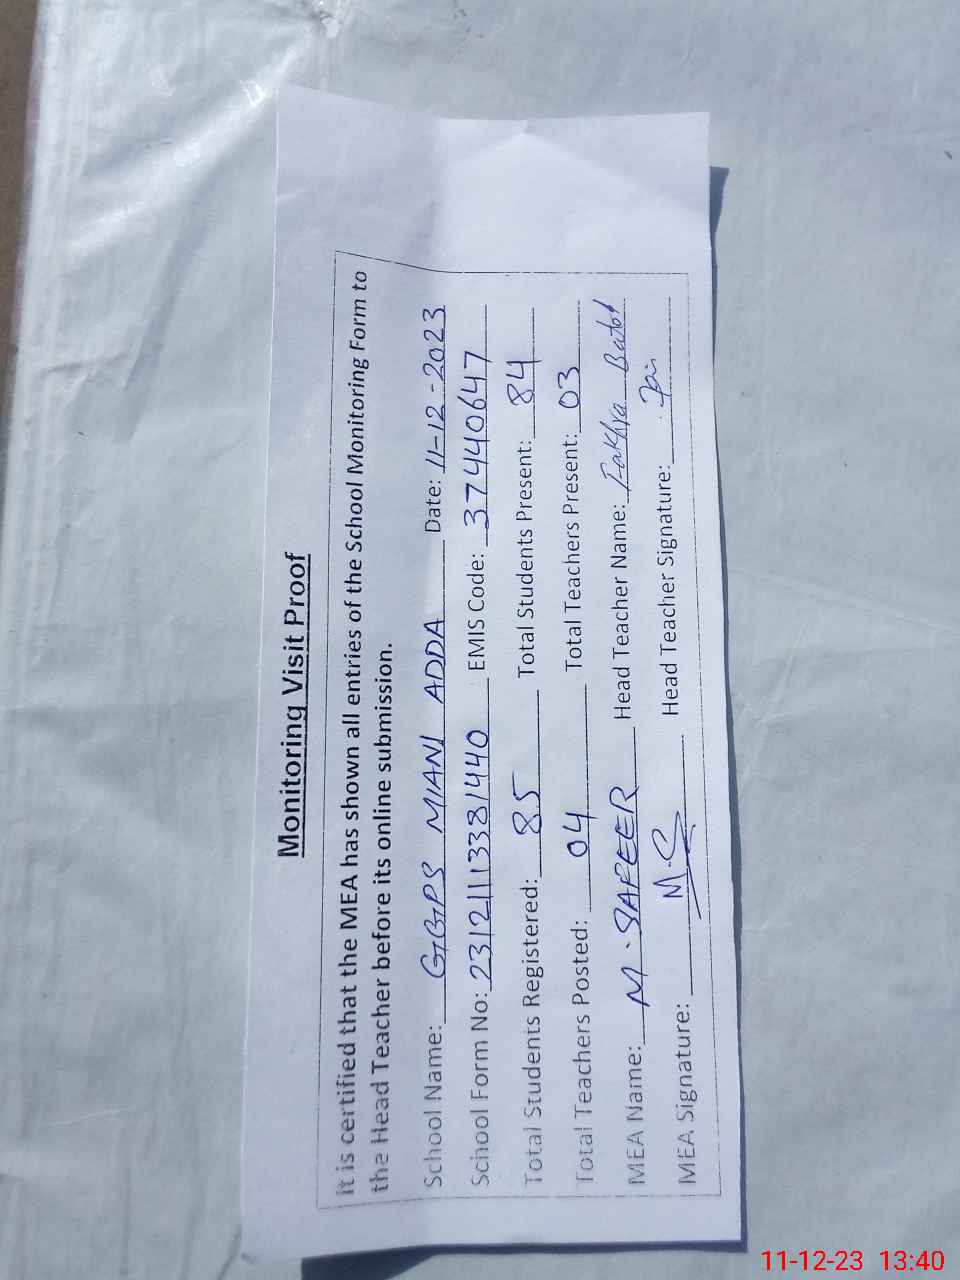 Monitoring Visit Proof
It is certified that the MEA has shown all entries of the School Monitoring Form to
the Head Teacher before its online submission.
School Name: GGPS MIANI ADDA Date: 11-12-2023
School Form No: 23121113381440 EMIS Code: 37440647
Total Students Registered: 85 Total Students Present: 84
Total Teachers Posted: 04 Total Teachers Present: 03
MEA Name: M. SAFEER Head Teacher Name: Fakhra Batol
MEA Signature: M.S Head Teacher Signature:
11-12-23 13:40